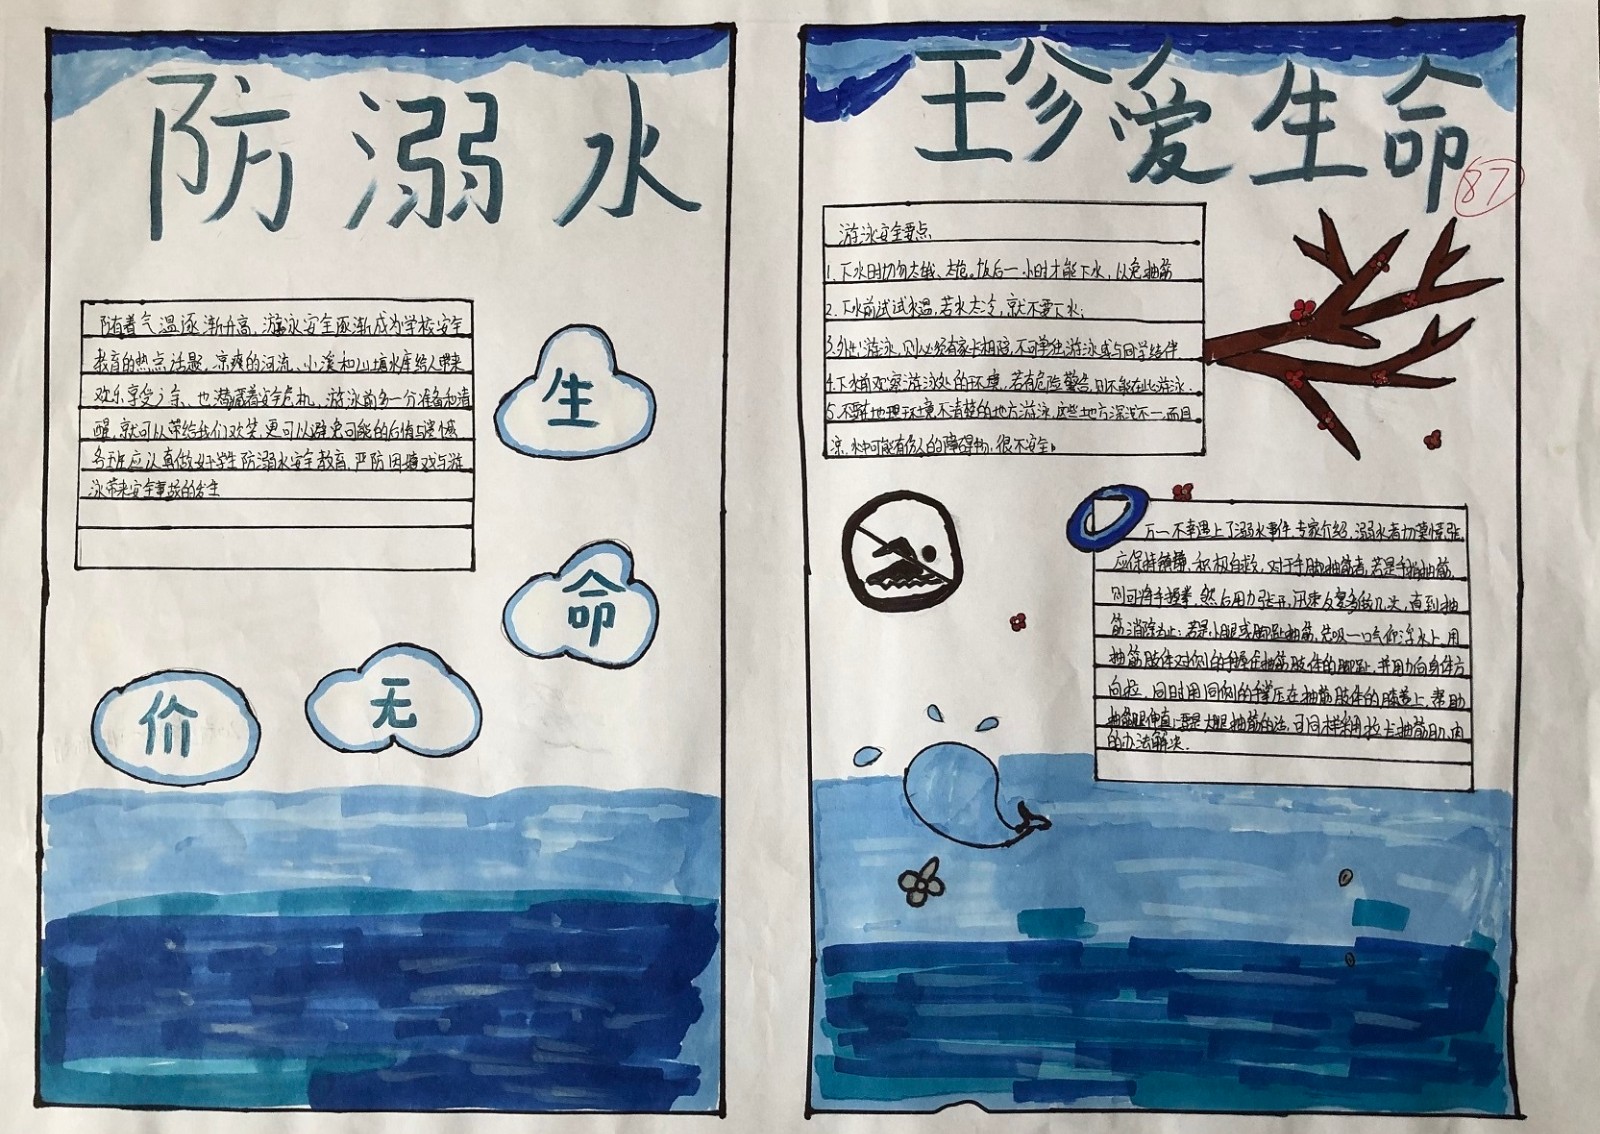 防溺水
随着气温逐渐升高,游泳安全逐渐成为学校安全
教育的热点话题,凉爽的河流、小溪和山塘水库给人带来
欢乐享受之余、也潜藏着安全危机,游泳前多一分准备和清
醒,就可以带给我们欢笑,更可以避免可能的后悔与遗憾
各班应认真做好学生防溺水安全教育,严防因嬉戏与游
泳带来安全事故的发生
生
命
无
价
珍爱生命
87
游泳安全要点
1、下水时切勿太饿、太饱。饭后一小时才能下水,以免抽筋
2、下水前试试水温,若水太冷,就不要下水;
3、外出游泳,则必须有家长相陪,不可单独游泳或与同学结伴
4、下水前观察游泳处的环境,若有危险警告,则不能在此游泳.
5、不要在地理环境不清楚的地方游泳,这些地方深浅不一,而且
凉,水中可能有伤人的障碍物,很不安全。
万一不幸遇上了溺水事件,专家介绍,溺水者切莫慌张,
应保持镇静、积极自救,对于手脚抽筋者,若是手指抽筋,
则可将手握拳,然后用力张开,迅速反复多做几次,直到抽
筋消除为止;若是小腿或脚趾抽筋,先吸一口气仰浮水上,用
抽筋肢体对侧的手握住抽筋肢体的脚趾,并用力向身体方
向拉,同时用同侧的手掌压在抽筋肢体的膝盖上,帮助
抽筋腿伸直;要是大腿抽筋的话,可同样采用拉长抽筋肌肉
的办法解决.